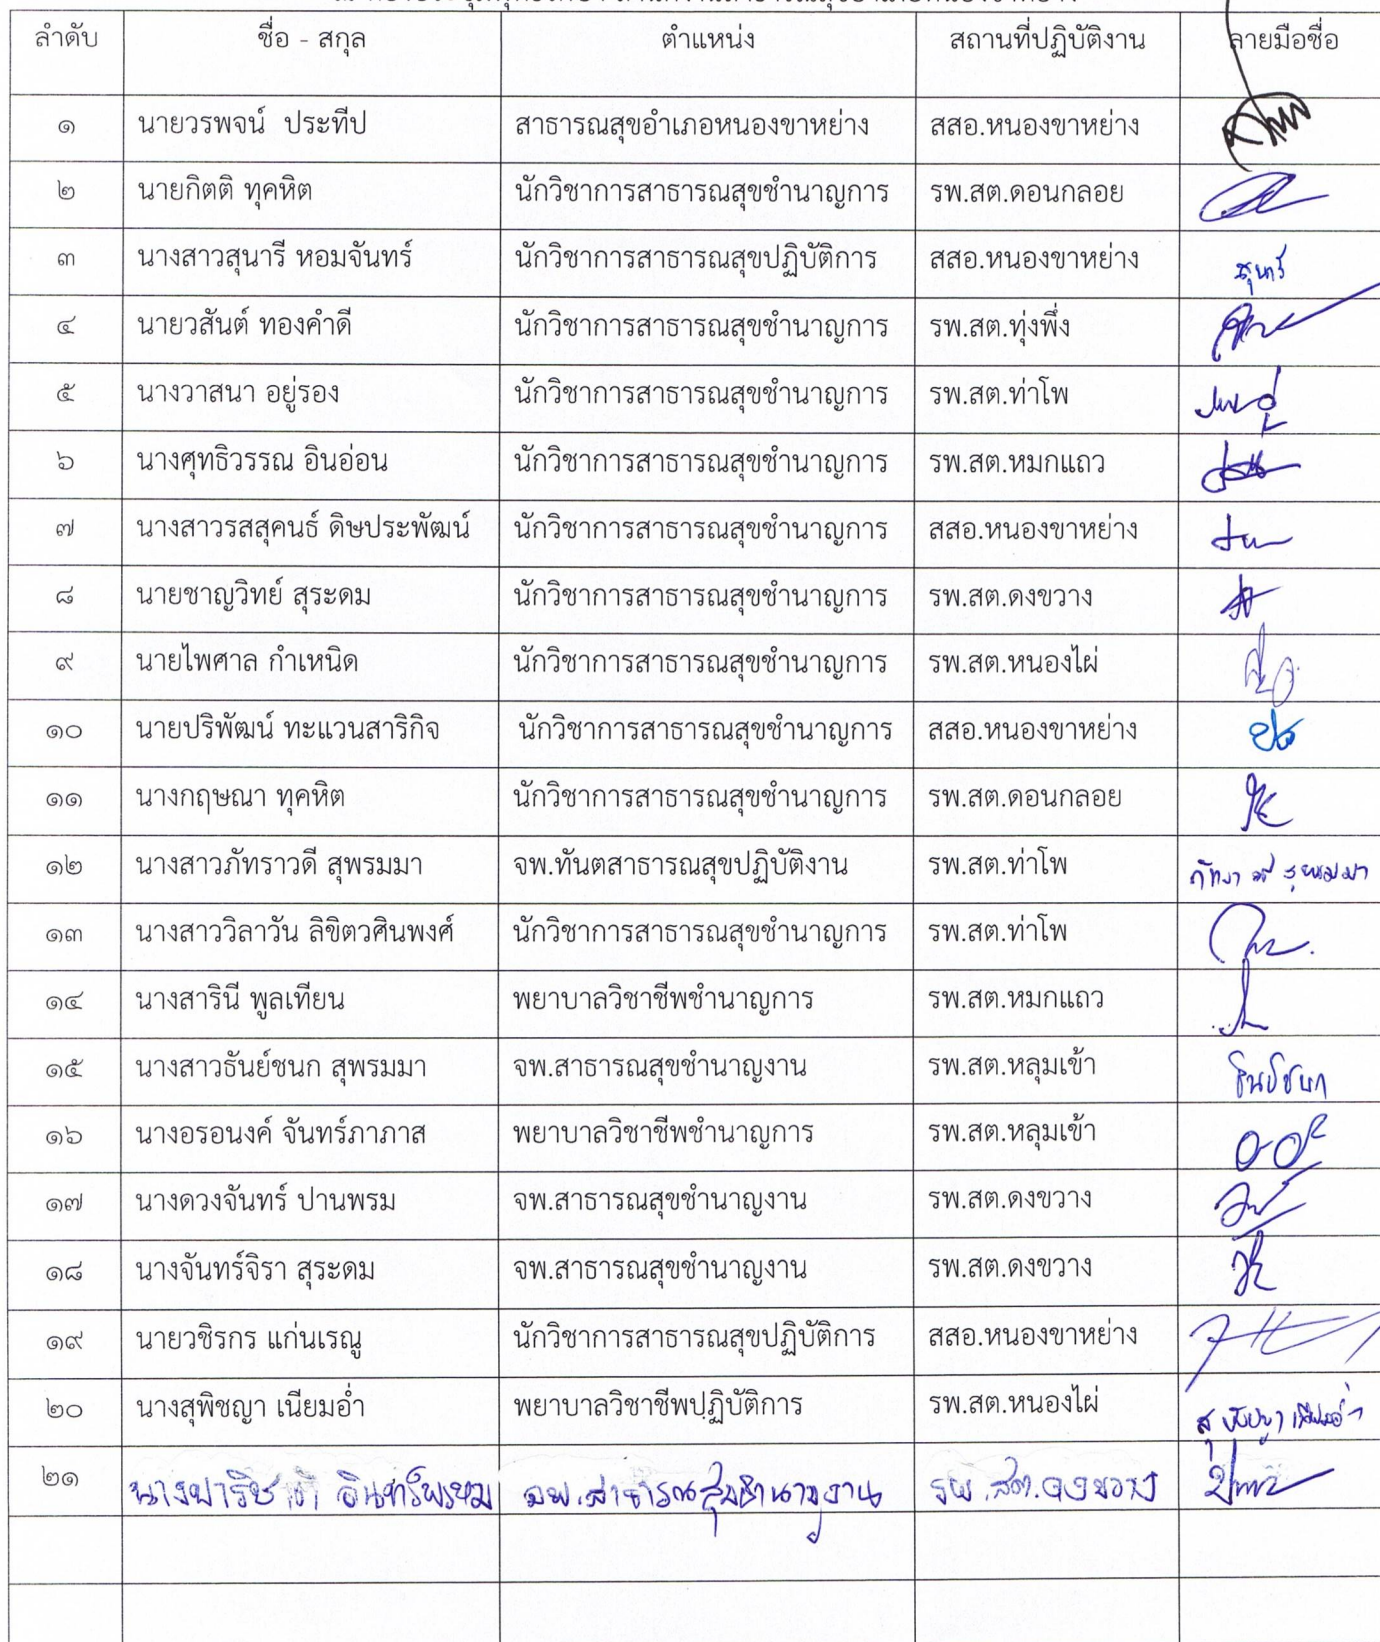 ลำดับ ชื่อ - สกุล ตำแหน่ง สถานที่ปฏิบัติงาน ลายมือชื่อ
๑ นายวรพจน์ ประทีป สาธารณสุขอำเภอหนองขาหย่าง สสอ.หนองขาหย่าง
๒ นายกิตติ ทุคหิต นักวิชาการสาธารณสุขชำนาญการ รพ.สต.ดอนกลอย
๓ นางสาวสุนารี หอมจันทร์ นักวิชาการสาธารณสุขปฏิบัติการ สสอ.หนองขาหย่าง สุนารี
๔ นายวสันต์ ทองคำดี นักวิชาการสาธารณสุขชำนาญการ รพ.สต.ทุ่งพึ่ง
๕ นางวาสนา อยู่รอง นักวิชาการสาธารณสุขชำนาญการ รพ.สต.ท่าโพ
๖ นางศุทธิวรรณ อินอ่อน นักวิชาการสาธารณสุขชำนาญการ รพ.สต.หมกแถว
๗ นางสาวรสสุคนธ์ ดิษประพัฒน์ นักวิชาการสาธารณสุขชำนาญการ สสอ.หนองขาหย่าง
๘ นายชาญวิทย์ สุระดม นักวิชาการสาธารณสุขชำนาญการ รพ.สต.ดงขวาง
๙ นายไพศาล กำเหนิด นักวิชาการสาธารณสุขชำนาญการ รพ.สต.หนองไผ่
๑๐ นายปริพัฒน์ ทะแวนสาริกิจ นักวิชาการสาธารณสุขชำนาญการ สสอ.หนองขาหย่าง
๑๑ นางกฤษณา ทุคหิต นักวิชาการสาธารณสุขชำนาญการ รพ.สต.ดอนกลอย
๑๒ นางสาวภัทราวดี สุพรมมา จพ.ทันตสาธารณสุขปฏิบัติงาน รพ.สต.ท่าโพ ภัทราวดี สุพรมมา
๑๓ นางสาววิลาวัน ลิขิตวศินพงศ์ นักวิชาการสาธารณสุขชำนาญการ รพ.สต.ท่าโพ
๑๔ นางสารินี พูลเทียน พยาบาลวิชาชีพชำนาญการ รพ.สต.หมกแถว
๑๕ นางสาวธันย์ชนก สุพรมมา จพ.สาธารณสุขชำนาญงาน รพ.สต.หลุมเข้า ธันย์ชนก
๑๖ นางอรอนงค์ จันทร์ภาภาส พยาบาลวิชาชีพชำนาญการ รพ.สต.หลุมเข้า
๑๗ นางดวงจันทร์ ปานพรม จพ.สาธารณสุขชำนาญงาน รพ.สต.ดงขวาง
๑๘ นางจันทร์จิรา สุระดม จพ.สาธารณสุขชำนาญงาน รพ.สต.ดงขวาง
๑๙ นายวชิรกร แก่นเรณู นักวิชาการสาธารณสุขปฏิบัติการ สสอ.หนองขาหย่าง
๒๐ นางสุพิชญา เนียมอ่ำ พยาบาลวิชาชีพปฏิบัติการ รพ.สต.หนองไผ่ สุพิชญา เนียมอ่ำ
๒๑ นางปาริชาติ อินทร์พรหม จพ.สาธารณสุขชำนาญงาน รพ.สต.ดงขวาง